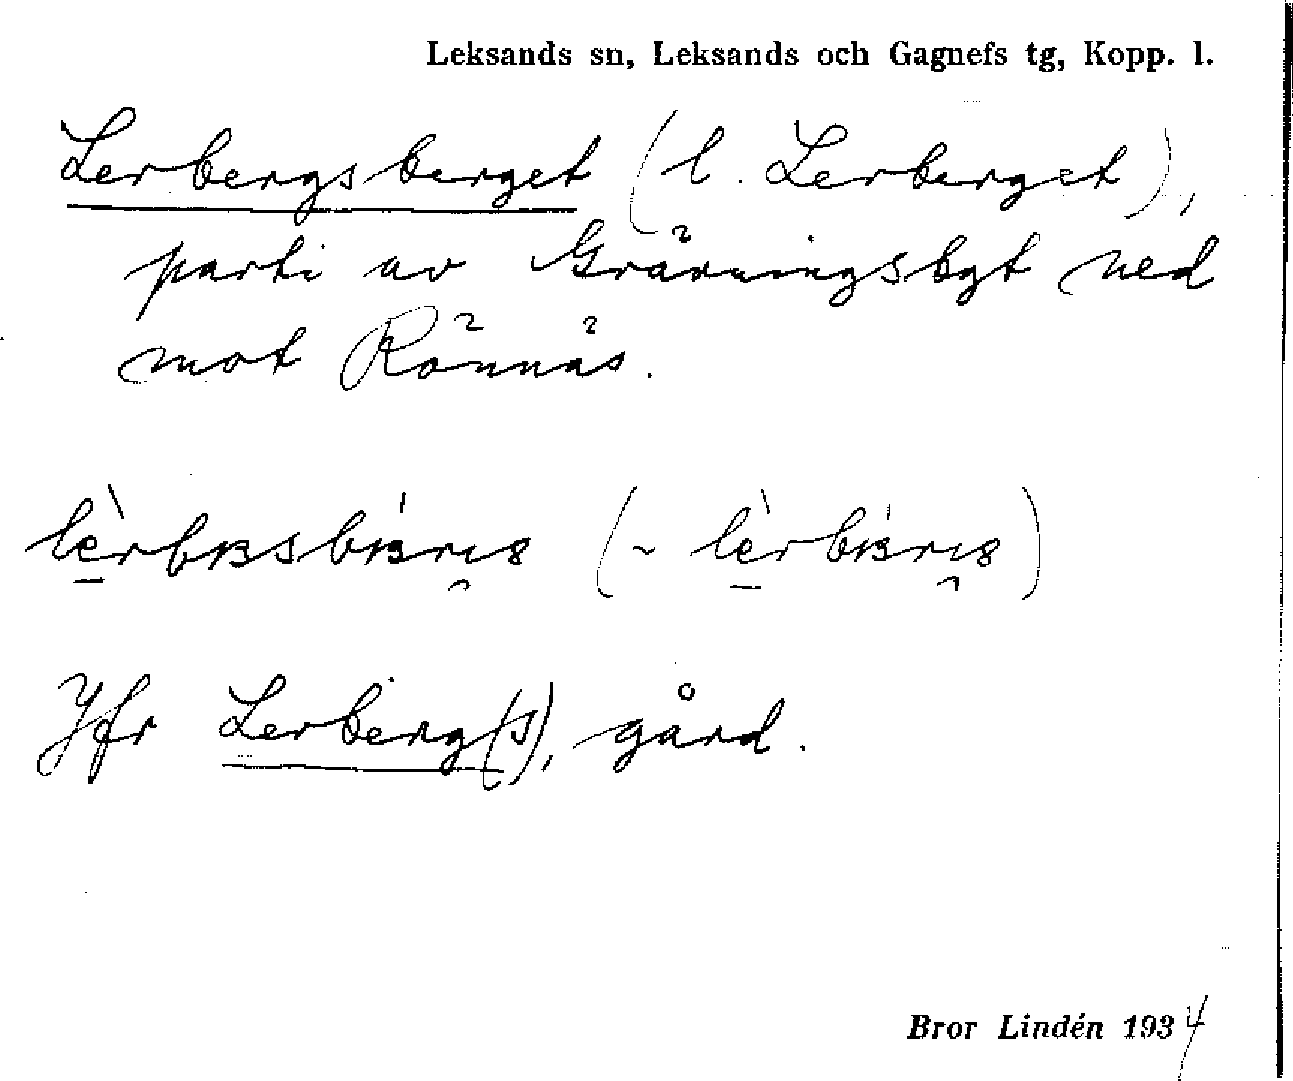 Leksands sn, Leksands och Gagnefs tg, Kopp. l.
Lerbergsberget (l. Lerberget),
parti av Grävningsbyt ned
mot Rönnäs.
Jfr Lerberg(s), gård.
Bror Lindén 1934